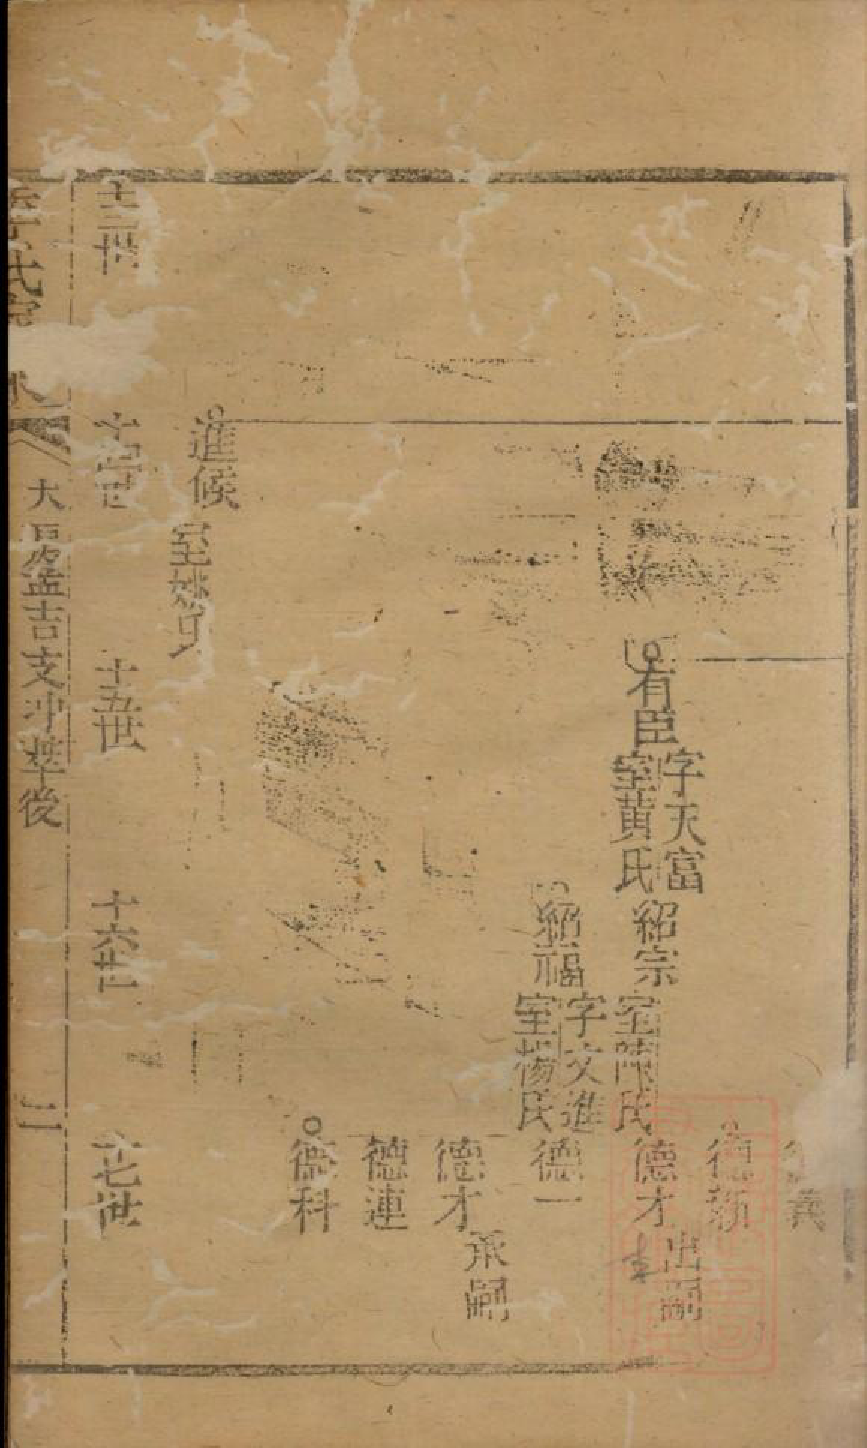 義
德新
德才出嗣
有臣字天富室黃氏
紹宗室陳氏
紹福字文進室楊氏
德一
德才承嗣
德連
德科
進候室姚氏
十三世
十四世
十五世
十六世
十七世
吉支冲華後
二